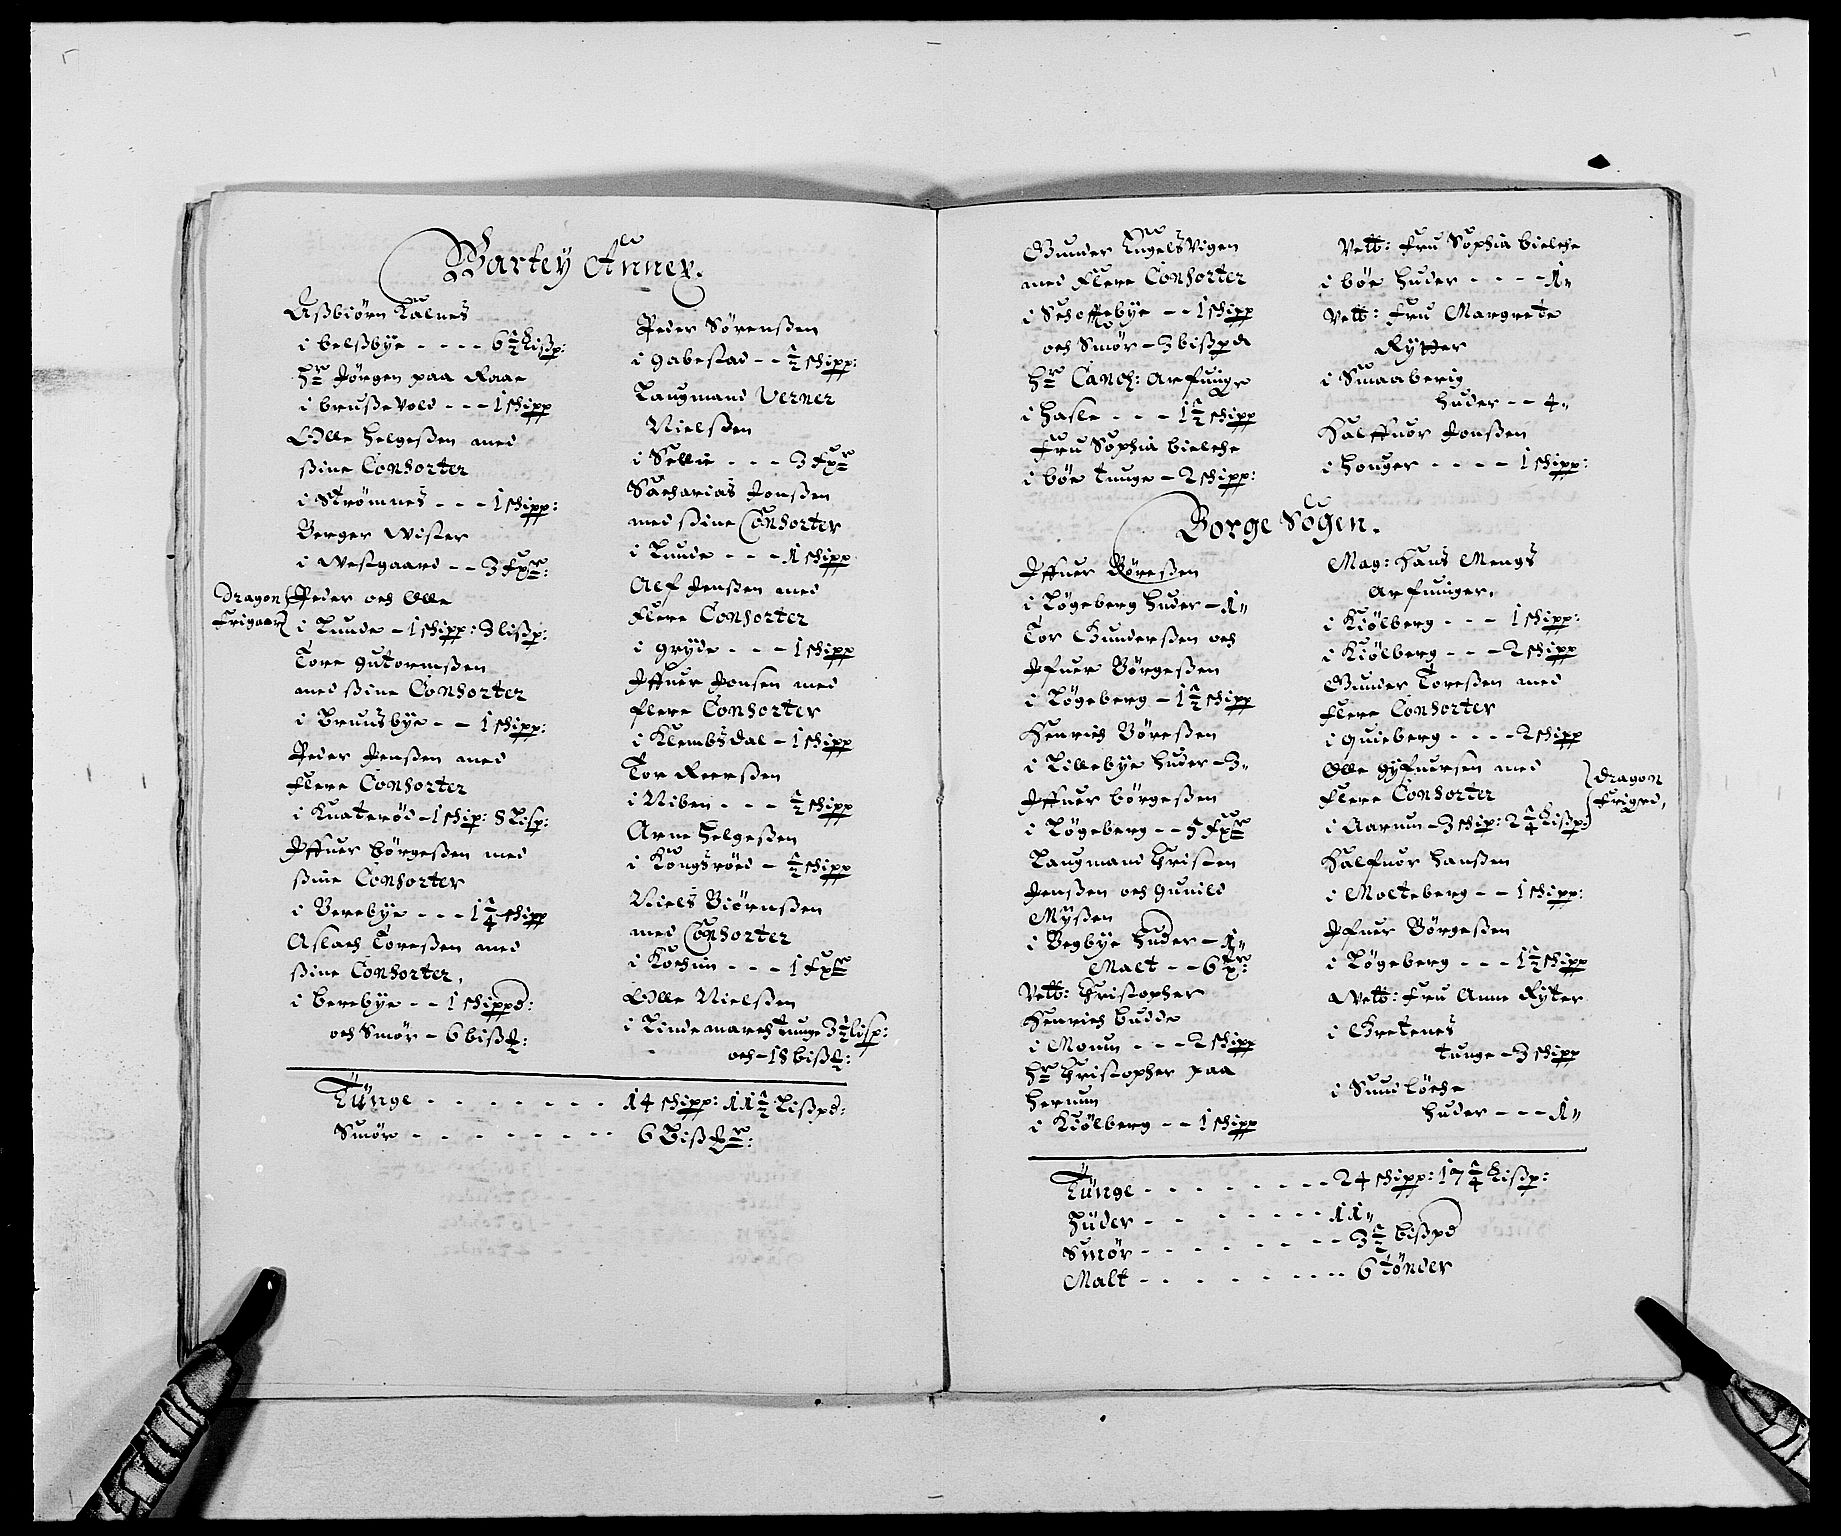 Vartey Annex.
Aßbiörn Kalnes
i belsbye - - - - 6½ Lißp:
Hr Jörgen paa Raae
i brußevold - - - 1 schipp
Olle Helgeßen med
ßine Consorter
i Strömnes - - - 1 schipp:
Berger Wister
i Westgaard - - 3 fxr:
Dragon Peder och Olle
frigaar i Lunde - 1 schipp: 3 lißp:
Tore gutormsen
med ßine Consorter
i Bruusbye - - 1 schipp:
Peder Jenßen med
flere Consorter
i Knateröd - 1 schip: 8 Lisp:
Iffuer börgeßen med
ßine Consorter
i Berebye - - - 1¼ schipp
Aslach Toreßen med
ßine Consorter,
i berebye - - 1 schippd:
och Smör - 6 biß℔:
Peder Sörenßen
i gabestad - - ½ schipp:
Laugmand Verner
Nielsßen
i Sellie - - - 3 fxr
Sacharias Jonßen
med ßine Consorter
i Lunde - - - 1 schipp
Alf Jenßen med
flere Consorter
i gryde - - - 1 schipp
Iffuer Jonsen med
flere Consorter
i Klembsdal - 1 schipp
Tor Reerßen
i Viben - - - ½ schipp
Arne Helgeßen
i Kongsröed - ½ schipp
Niels Biörnßen
med Consorter
i Kochim - - - 1 fxr
Olle Nielßen
i Lindemarch tunge 3½ lisp:
och - 18 biß℔:
Tünge - - - - - - - 14 schipp: 11½ Lißpd:
Smör - - - - - - - - 6 Biß℔r:
Gunder EngelsVigen
med flere Consorter
i Schoffebye - - 1 schipp
och Smör - 3 bißpd
Hr Cantz: Arfuinge
i Hasle - - - 1½ schipp
fru Sophia bielche
i böe tunge - 2 schipp:
Velb: fru Sophia bielche
i böe huder - - - - 1„
Velb: fru Margrete
Rytter
i Smaaberig
huder - - 4„
Halffuor Jonßen
i houger - - - - 1 schipp:
Borge Sogen.
Iffuer Böreßen
i Lögeberg huder - 1„
Tor Gunderßen och
Ifuer Börgeßen
i Lögeberg - 1½ schipp
Henrich Böreßen
i Lillebye huder - 3„
Iffuer börgeßen
i Lögeberg - - 5 fxr
Laugmand Christen
Jenßen och gunild
Myßen
i Begbye huder - 1„
Malt - - 6 xr:
Velb: Christopher
Henrich budde
i Moum - - - 2 schipp
Hr Christopher paa
hernum
i Kiölberg - - 1 schipp
Mag: Hans Mengs
Arfuinger,
i Kiölberg - - - 1 schipp:
i Kiölberg - - - 2 schipp
Gunder Toreßen med
flere Consorter
i guieberg - - - - 2 schipp
Olle gyfuersen med
flere Consorter
i Aarum - 3 schip: 2¼ Lißp:
Dragon
frigrd,
Halfuor Hanßen
i Molteberg - - 1 schipp:
Ifuer Börgeßen
i Lögeberg - - - 1½ schipp
Welb: fru Anne Ryter
i Gretenes
tunge - 3 schipp
i Sundlöche
huder - - - 1„
Tünge - - - - - - - - 24 schipp: 17¼ Lißp:
Hüder - - - - - - - - 11„
Smör - - - - - - - - 3½ bißpd
Malt - - - - - - - - - 6 tönder